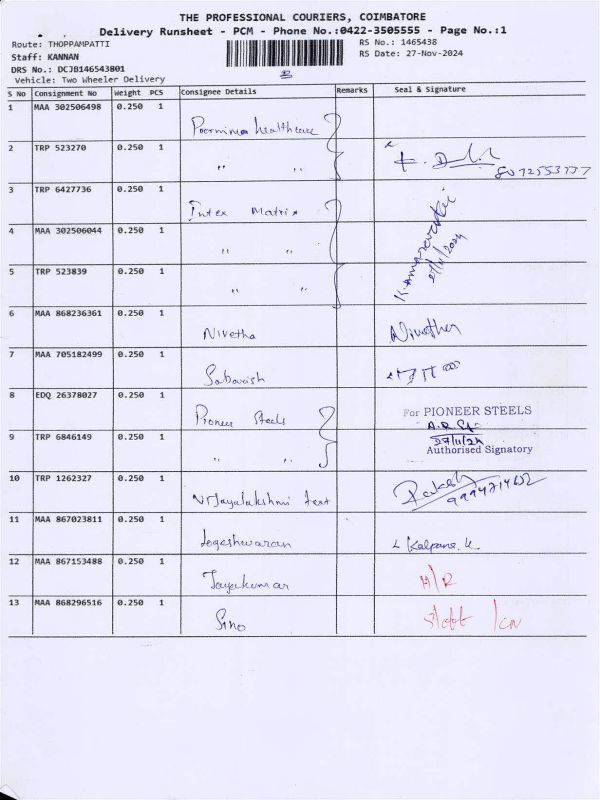 THE PROFESSIONAL COURIERS, COIMBATORE
Delivery Runsheet - PCM - Phone No.:0422-3505555 - Page No.:1
Route: THOPPAMPATTI
RS No.: 1465438
Staff: KANNAN
RS Date: 27-Nov-2024
DRS No.: DCJB146543801
Vehicle: Two Wheeler Delivery
S No Consignment No Weight PCS Consignee Details Remarks Seal & Signature
1 MAA 302506498 0.250 1
Poornima healthcare
2 TRP 523270 0.250 1
" "
3 TRP 6427736 0.250 1
Intex Matrix
4 MAA 302506044 0.250 1
" "
27/11/2024
5 TRP 523839 0.250 1
" "
6 MAA 868236361 0.250 1
Nivetha Nivetha
7 MAA 705182499 0.250 1
8 EDQ 26378027 0.250 1
Pioneer Steels
For PIONEER STEELS
27/11/24
Authorised Signatory
9 TRP 6846149 0.250 1
" "
10 TRP 1262327 0.250 1
Jayalakshmi text
11 MAA 867023811 0.250 1
Logeshwaran Kalpana. K
12 MAA 867153488 0.250 1
Jayakumar H/R
13 MAA 868296516 0.250 1
Sino